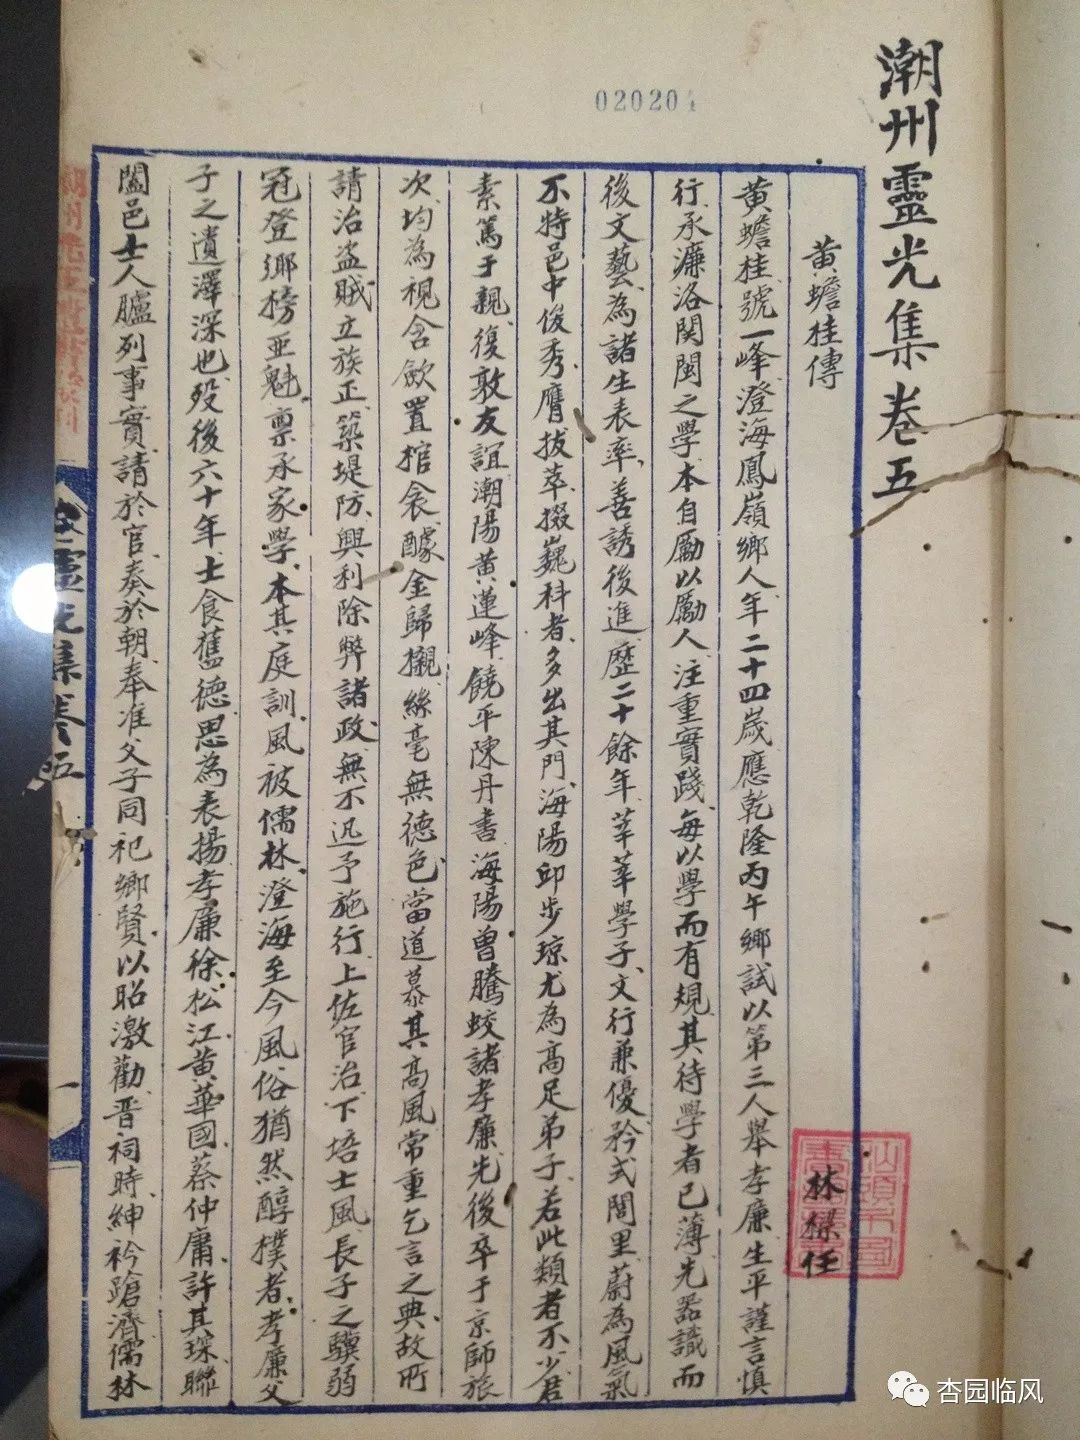 潮州靈光集卷五
020204
黃蟾桂傳
林樑任
黃蟾桂號一峰澄海鳳嶺鄉人年二十四歲應乾隆丙午鄉試以第三人舉孝廉生平謹言慎
行、承濂洛関閩之學、本自勵以勵人、注重實踐、每以學而有規其待學者已薄先器識而
後文藝、為諸生表率、善誘後進歷二十餘年莘莘學子、文行兼優矜式閭里蔚為風氣
不特邑中俊秀、膺拔萃、掇巍科者、多出其門、海陽邱步瓊尤為高足弟子、若此類者不少、君
素篤于親、復敦友誼潮陽黃蓮峰、饒平陳丹書海陽曾騰蛟諸孝廉先後卒于京師旅
次、均為視含歛置棺衾醵金歸櫬、絲毫無德色、當道慕其高風常重乞言之典、故所
請治盜賊、立族正、築堤防、興利除弊諸政、無不迅予施行、上佐官治、下培士風長子之驥弱
冠登鄉榜亞魁、禀承家學、本其庭訓、風被儒林、澄海至今風俗猶然醇樸者、孝廉父
子之遺澤深也、歿後六十年、士食舊德、思為表揚孝廉徐松江、黃華國、蔡仲庸、許其琛、聯
闔邑士人臚列事實、請於官、奏於朝、奉准父子同祀鄉賢、以昭激勸、晋祠時、紳衿蹌濟儒林
靈光集卷五
一
杏园临风